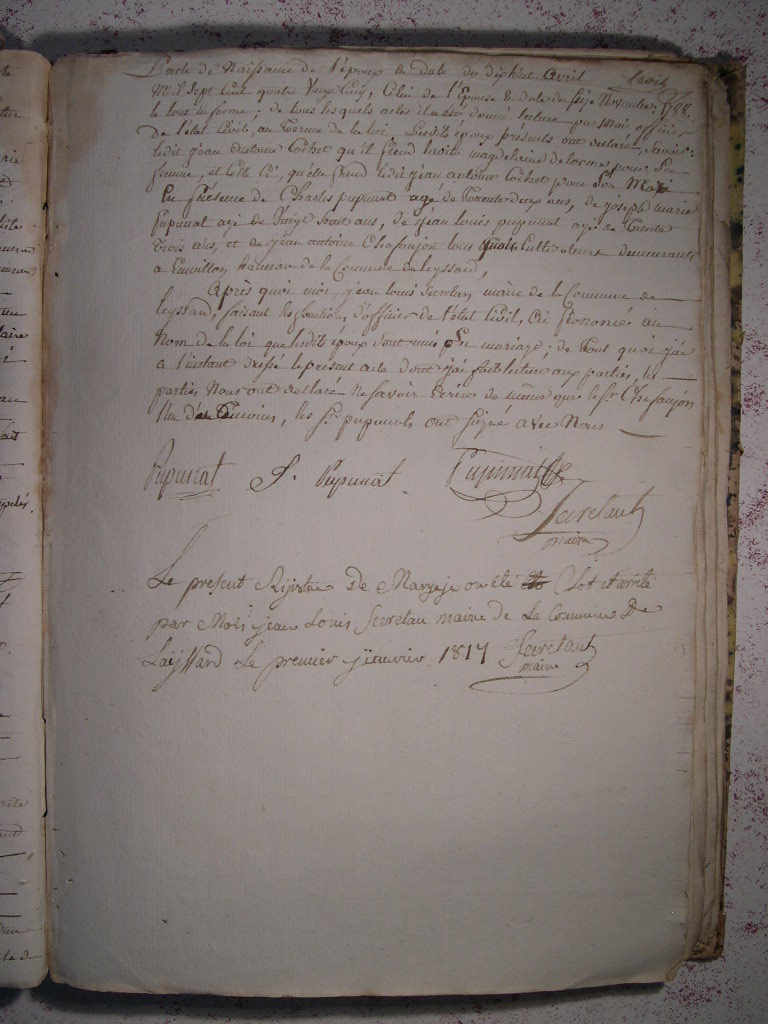 L'acte de Naissance de l'époux en date du dixhuit avril
Mil Sept Cent quatre Vingt Cinq, Celui de l'Epouse en date du Seize Novembre 1788
le tout en forme ; de tous lesquels actes il a été donné lecture par Moi, officier
De l'état Civil, au Terme de la loi. Lesdits époux présents ont déclaré, Savoir :
ledit jean antoine Cochet qu'il prend Marie magdelaine delorme pour Sa
femme, et Celle Ci, qu'elle prend ledit jean antoine Cochet pour Son Mari
En Présence de Charles pupunat agé de Trente deux ans, de joseph marie
Pupunat agé de Vingt huit ans, de jean louis pupunat agé de Trente
Trois ans, et de jean antoine Chafanjon tous quatre Cultivateurs demeurants
a hameau de la Commune de leyssard,
Après quoi moi jean louis Secretan maire de la Commune de
leyssard, faisant les fonctions d'officier de l'état Civil, ai prononcé au
Nom de la loi que lesdits époux Sont unis En mariage ; de Tout quoi j'ai
a l'instant dressé le present acte dont j'ai fait lecture aux parties, les
parties Nous ont declaré Ne Savoir Ecrire de même que le Sr Chafanjon
l'un des Temoins, les Srs pupunats ont Signé avec Nous
Pupunat J. Pupunat Pupunat
Secretant
maire
Le present Rijistre De Maryaje a été Clot et arrété
par Moi jean Louis Secretan maire de La Commune De
Laijssard Le premier janvier 1817 Secretant
maire